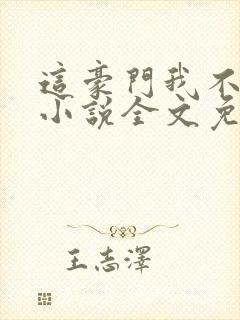 這豪門我不
小說全文免
王志澤